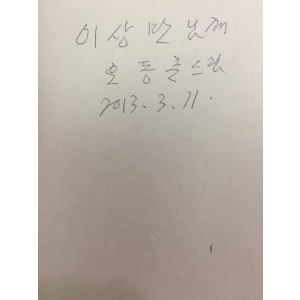 이상만 님께
오동춘 드림
2013. 3. 11.